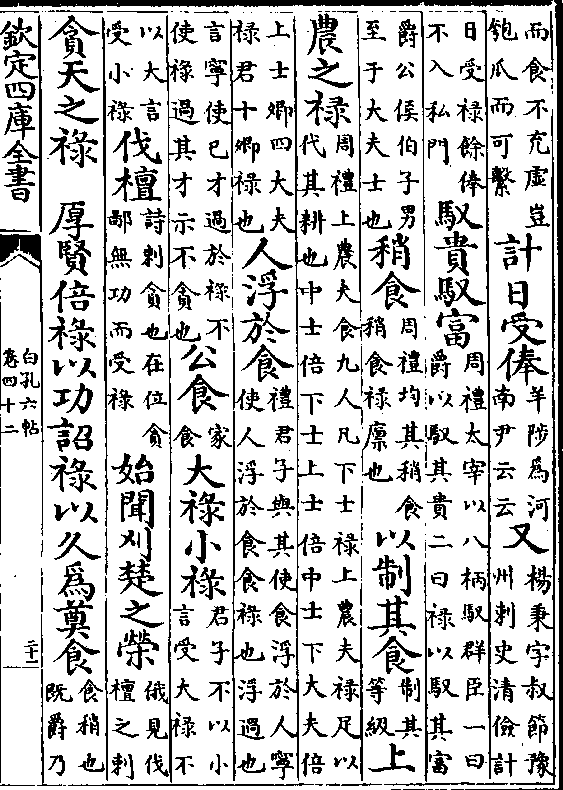 而食不充虛豈匏瓜而可繫計日受俸羊陟為河南尹云云又楊秉字叔節豫州刺史清儉計
日受禄餘俸不入私門馭貴馭富周禮太宰以八柄馭群臣一曰爵以馭其貴二曰禄以馭其富
爵公侯伯子男至于大夫士也稍食周禮均其稍食稍食禄廩也以制其食制其等級上
農之禄周禮上農夫食九人凡下士禄上農夫禄足以代其耕也中士倍下士上士倍中士下大夫倍
上士卿四大夫禄君十卿禄也人浮於食禮君子與其使食浮於人寧使人浮於食食禄也浮過也
言寧使已才過於禄不使禄過其才示不貪也公食家食大禄小禄君子不以小言受大禄不
以大言受小禄伐檀詩刺貪也在位貪鄙無功而受禄始聞刈楚之榮俄見伐檀之刺
貪天之禄 厚賢倍禄以功詔禄以久為奠食食稍也既爵乃
欽定四庫全書
白孔六帖
卷四十二
二十一